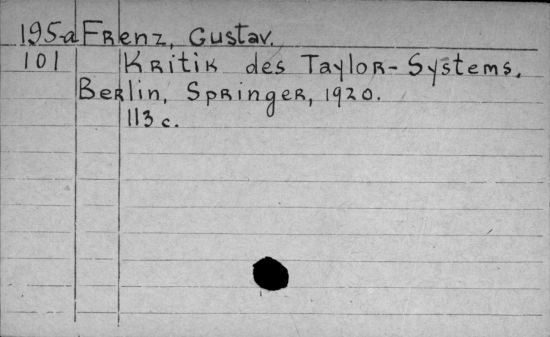 195-a Frenz, Gustav.
101 Kritik des Taylor-Systems.
Berlin, Springer, 1920.
113 c.